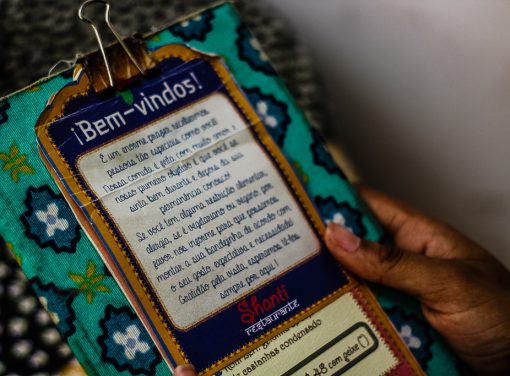 ¡Bem-vindos!
É um enorme prazer recebermos
pessoas tão especiais como você!
Nossa comida é feita com muito amor e
nosso primeiro objetivo é que você se
sinta bem durante e depois da sua
permanência conosco!
Se você tem alguma restrição alimentar,
alergia, se é vegetariano ou vegano por
favor nos informe para que possamos
montar a sua bandejinha de acordo com
o seu gosto, expectativa e necessidade!
Gratidão pela visita, esperamos tê-los
sempre por aqui!
Shanti
restaurante
de castanhas condensado
48 com peixe